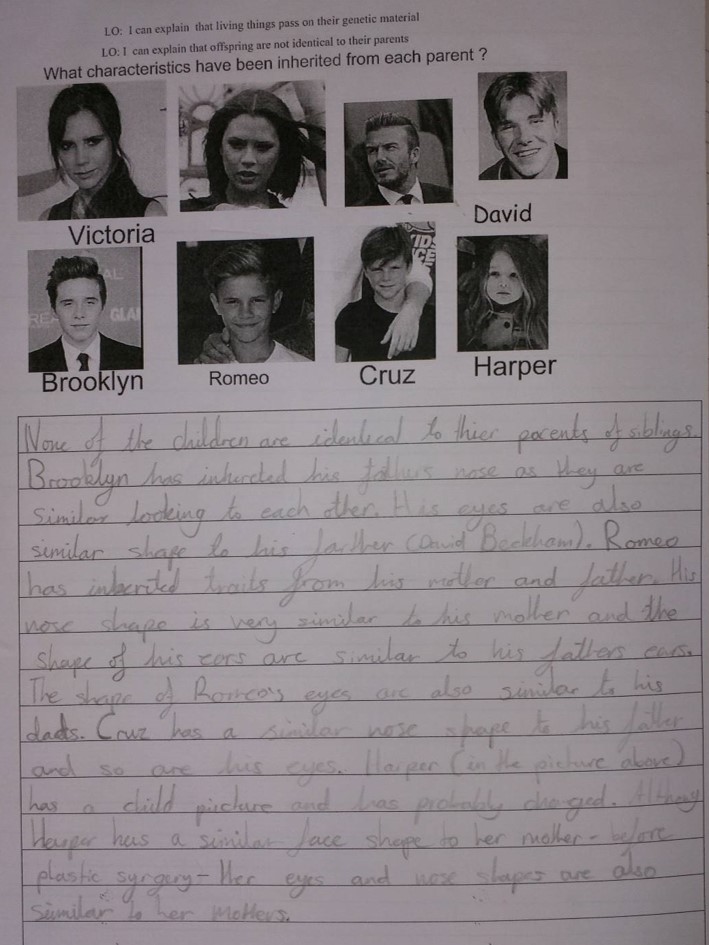 LO: I can explain that living things pass on their genetic material
LO: I can explain that offspring are not identical to their parents
What characteristics have been inherited from each parent ?
David
Victoria
KIDS
REA
GLA
Brooklyn
Romeo
Cruz
Harper
None of the children are identical to thier parents of siblings.
Brooklyn has inhereted his fathers nose as they are
similar looking to each other. His eyes are also
similar shape to his farther (David Beckham). Romeo
has inherited traits from his mother and father. His
nose shape is very similar to his mother and the
shape of his ears are similar to his fathers ears.
The shape of Romeo's eyes are also similar to his
dads. Cruz has a similar nose shape to his father
and so are his eyes. Harper (in the picture above)
has a child picture and has probably changed. Althoug
Harper has a similar face shape to her mother - before
plastic syrgery - Her eyes and nose shapes are also
similar to her mothers.